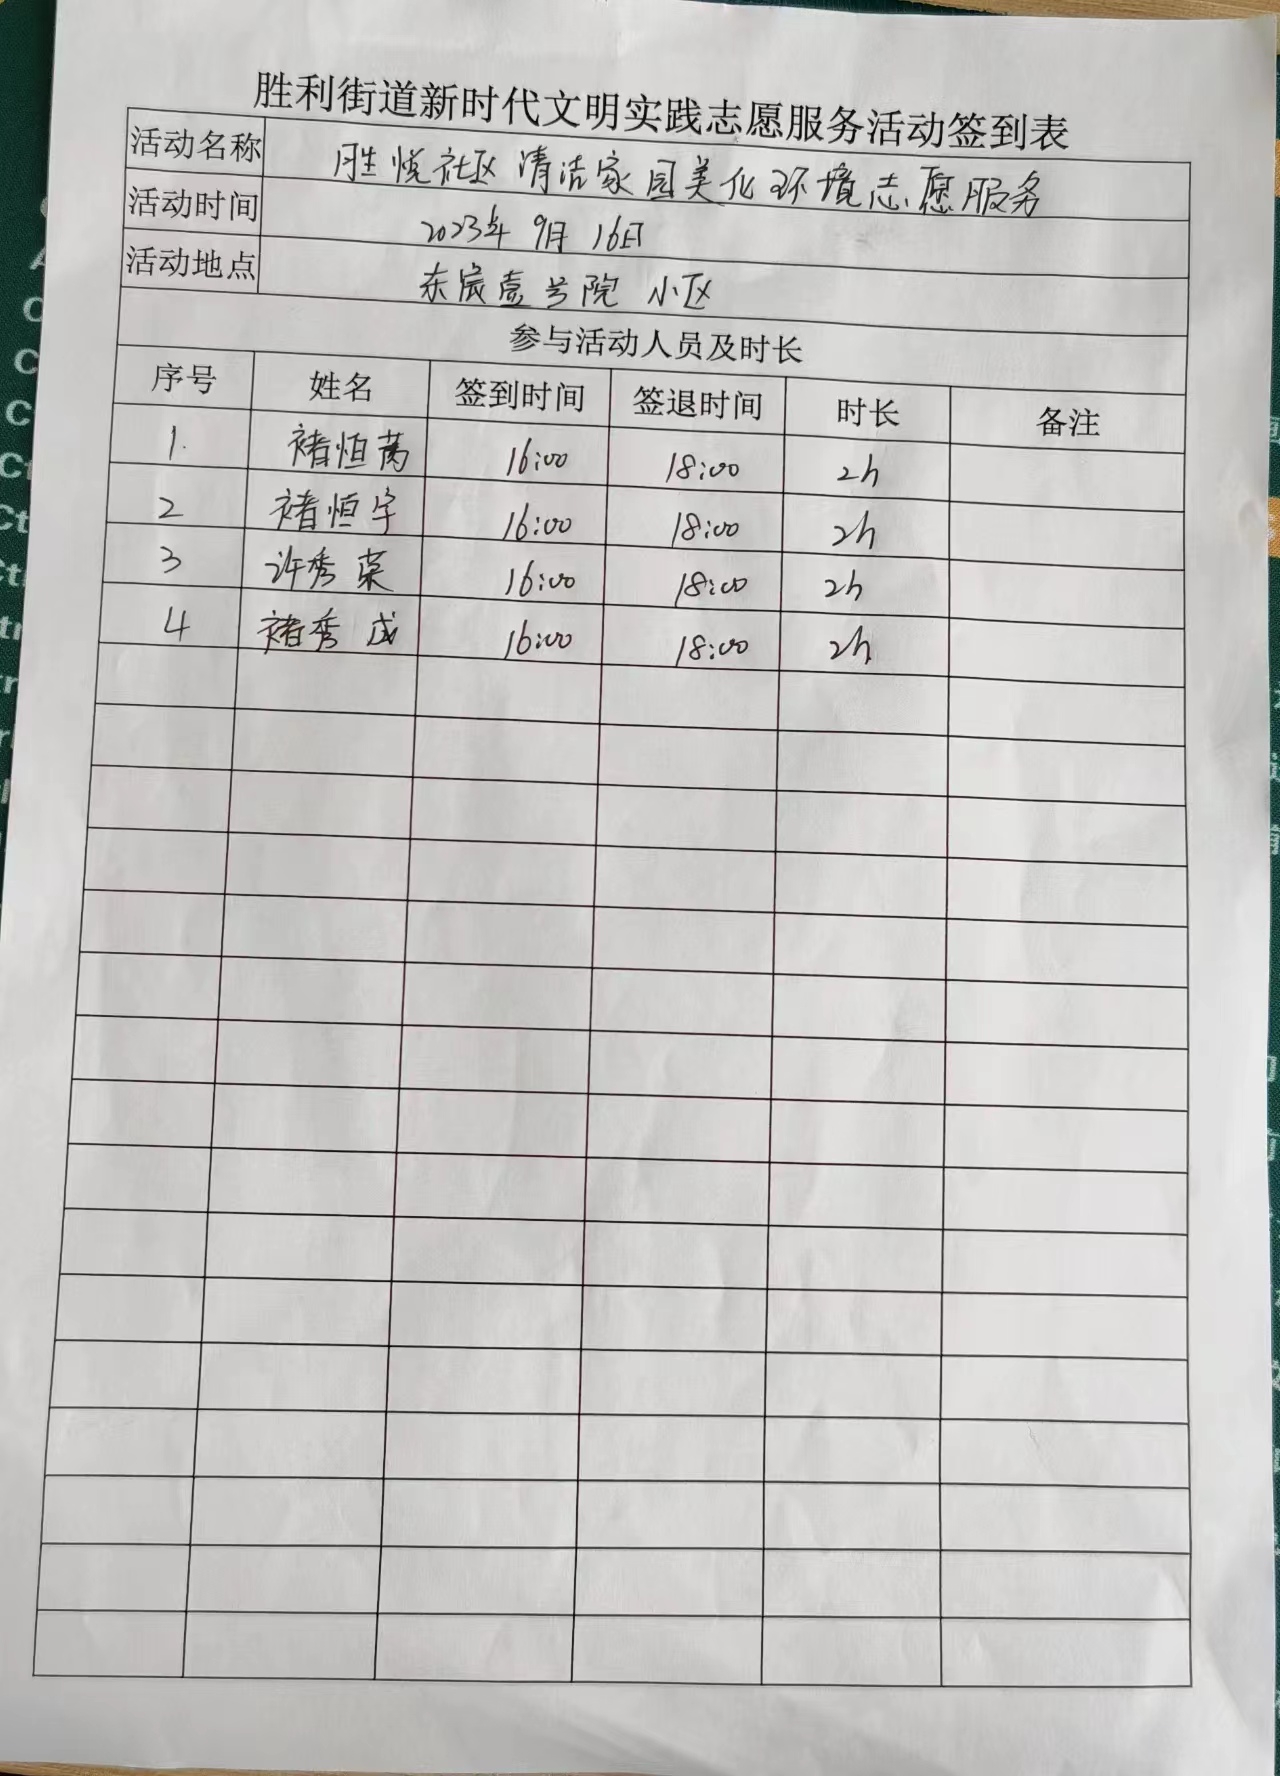 胜利街道新时代文明实践志愿服务活动签到表
活动名称 胜悦社区清洁家园美化环境志愿服务
活动时间 2023年9月16日
活动地点 东宸壹号院 小区
参与活动人员及时长
序号 姓名 签到时间 签退时间 时长 备注
1. 褚恒萬 16:00 18:00 2h
2 褚恒宇 16:00 18:00 2h
3 许秀荣 16:00 18:00 2h
4 褚秀成 16:00 18:00 2h